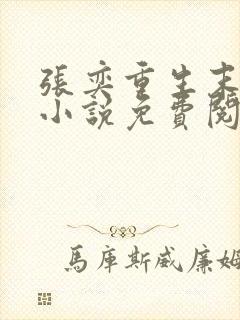 張奕重生末
小說免費閱
馬庫斯威廉姆